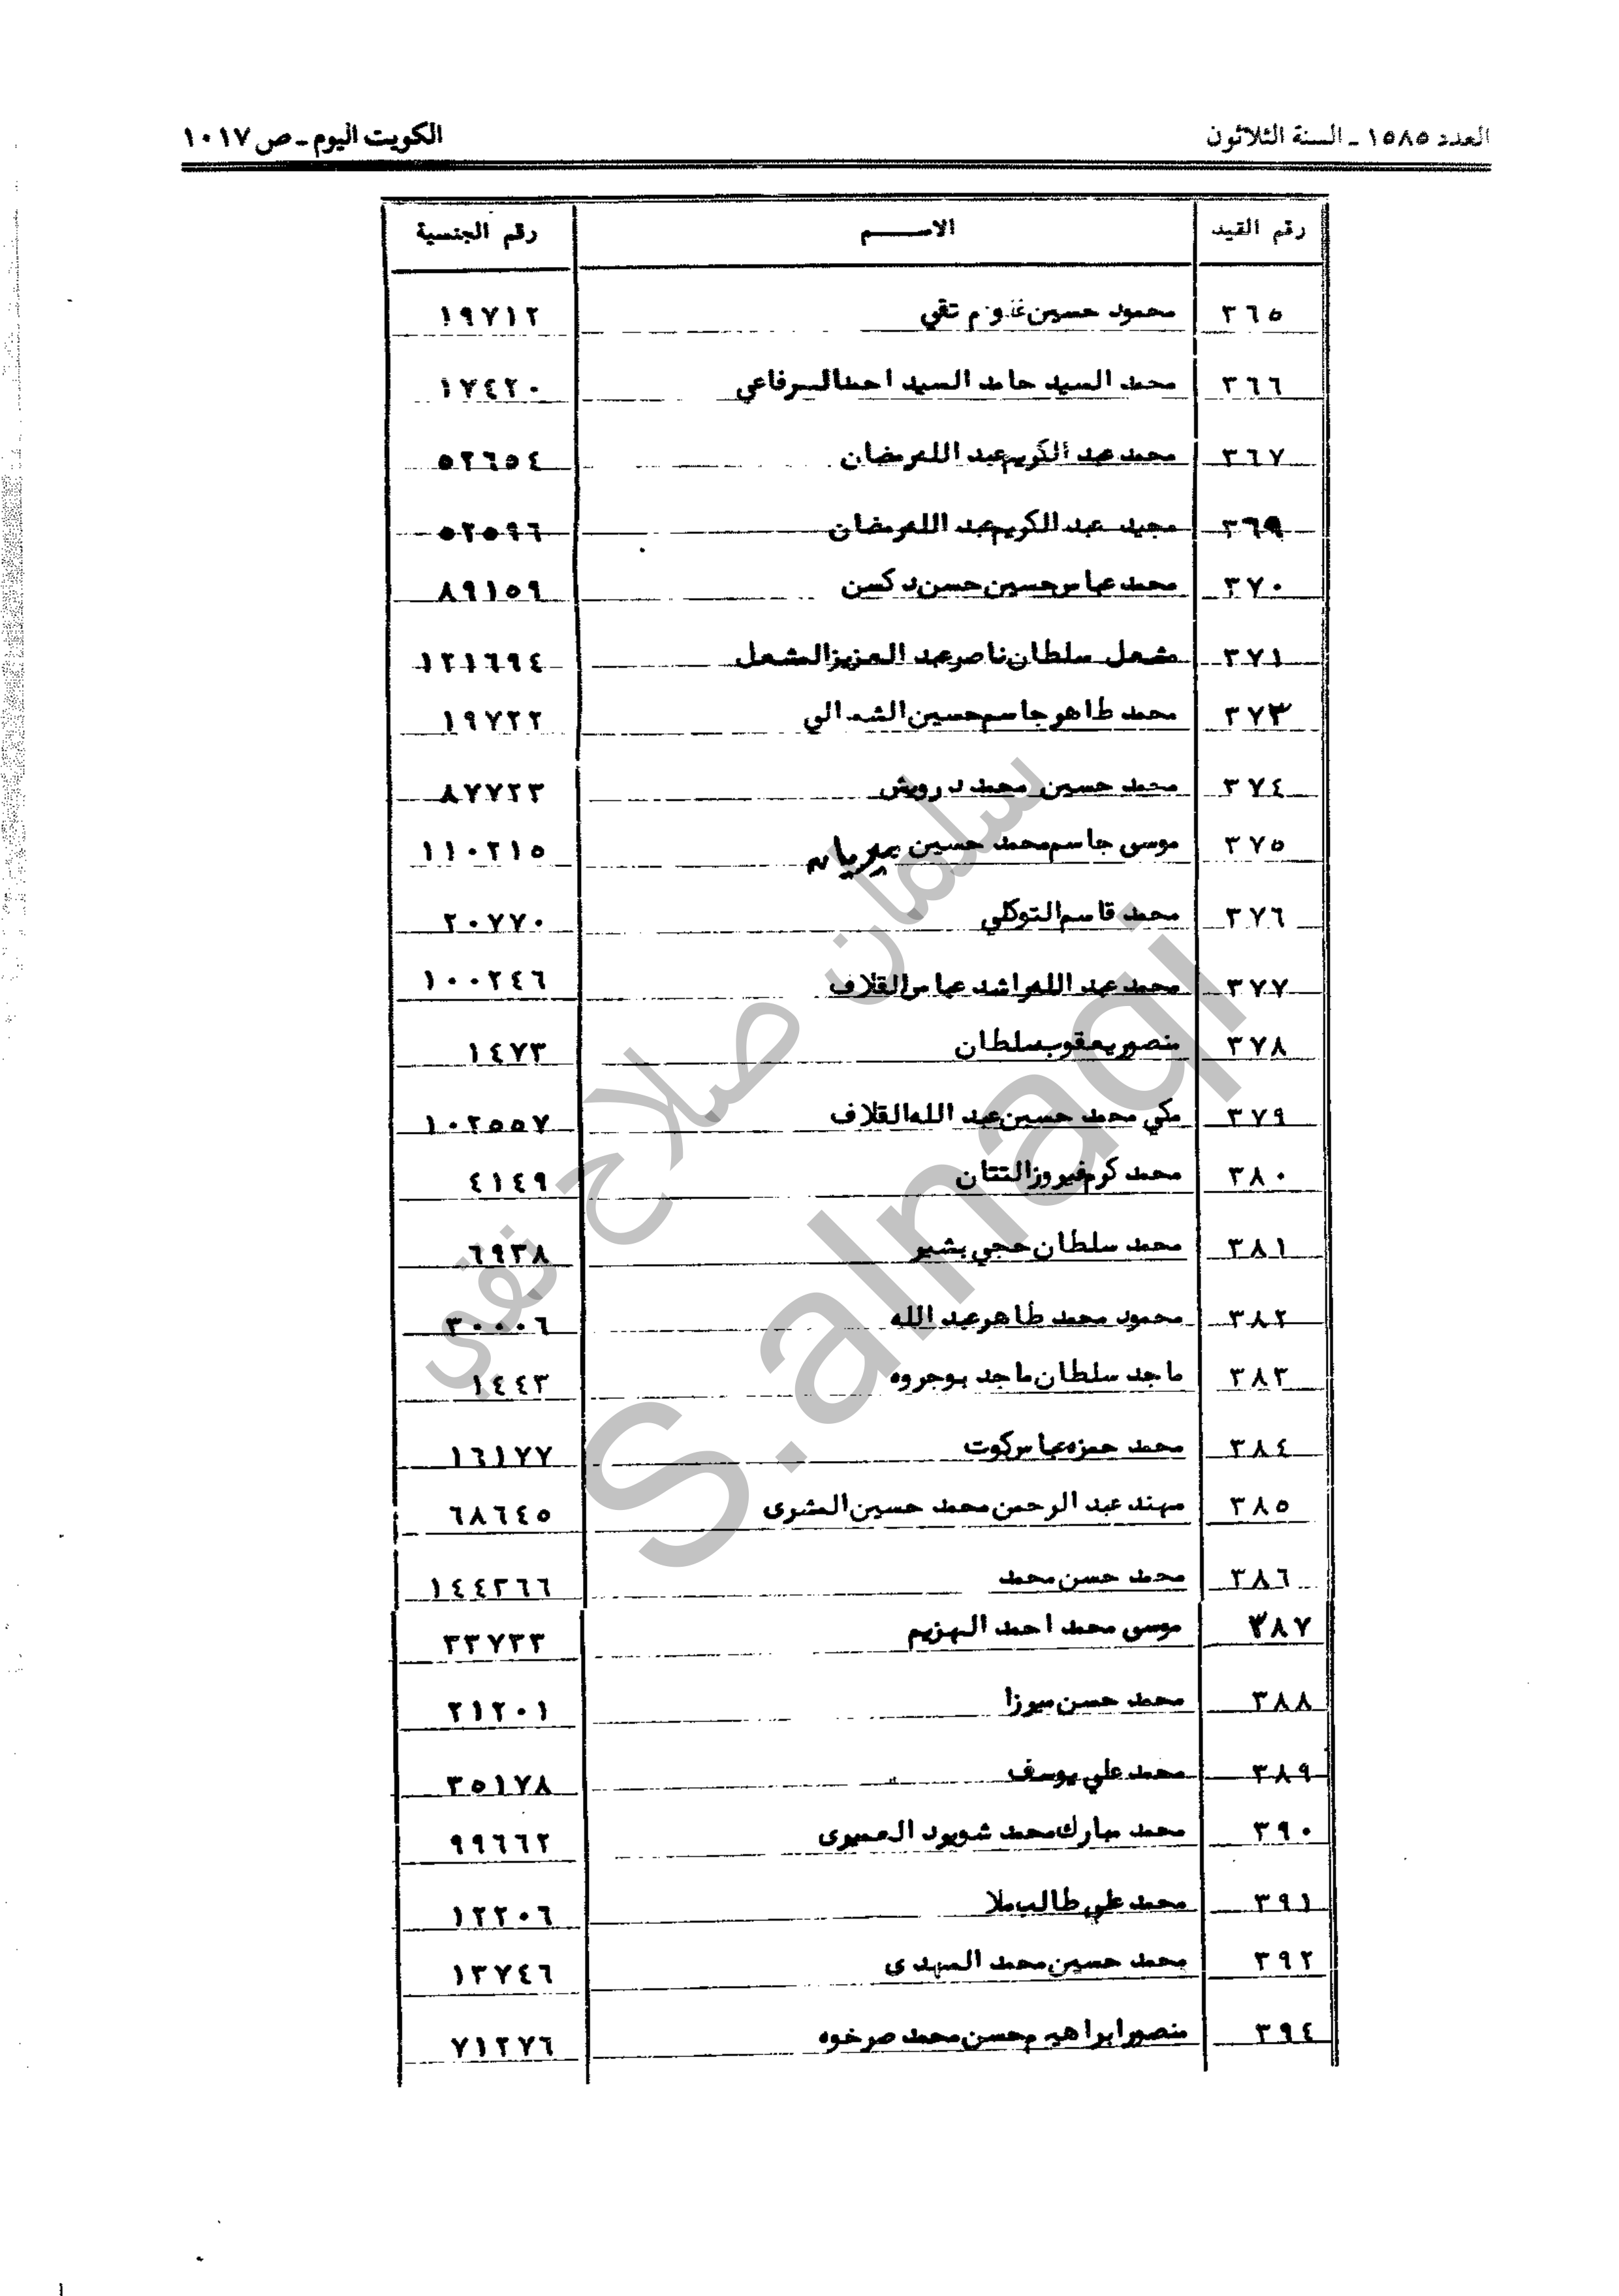 العدد ١٥٨٥ ـ السنة الثلاثون الكويت اليوم ـ ص ١٠١٧
رقم القيد الاســـم رقم الجنسية
٣٦٥ محمود حسين تقي ١٩٧١٢
٣٦٦ محمد السيد حامد السيد احمد الرفاعي ١٧٤٢٠
٣٦٧ محمد عبد الكريم عبد الله رمضان ٥٢٦٥٤
٣٦٩ مجيد عبد الكريم عبد الله رمضان ٥٢٥٩٦
٣٧٠ محمد عباس حسين حسن دكسن ٨٩١٥٩
٣٧١ مشعل سلطان ناصر عبد العزيز المشعل ١٢١٦٩٤
٣٧٣ محمد طاهر جاسم حسين الشمالي ١٩٧٢٢
٣٧٤ محمد حسين محمد درويش ٨٧٧٢٣
٣٧٥ موسى جاسم محمد حسين ١١٠٢١٥
٣٧٦ محمد قاسم التوكلي ٢٠٧٧٠
٣٧٧ محمد عبد الله راشد عباس القلاف ١٠٠٢٤٦
٣٧٨ منصور يعقوب سلطان ١٤٧٣
٣٧٩ مكي محمد حسين عبد الله القلاف ١٠٢٥٥٧
٣٨٠ محمد كرم فيروز التتان ٤١٤٩
٣٨١ محمد سلطان حجي بشير ٦٩٣٨
٣٨٢ محمود محمد طاهر عبد الله ٣٠٠٠٦
٣٨٣ ماجد سلطان ماجد بوجروه ١٤٤٣
٣٨٤ محمد حمزه عباس كوت ١٦١٧٧
٣٨٥ مهند عبد الرحمن محمد حسين المشرى ٦٨٦٤٥
٣٨٦ محمد حسن محمد ١٤٤٢٦٦
٣٨٧ موسى محمد احمد الهزيم ٣٣٧٣٣
٣٨٨ محمد حسن ميرزا ٢١٢٠١
٣٨٩ محمد علي يوسف ٣٥١٧٨
٣٩٠ محمد مبارك محمد شويرد العميرى ٩٩٦٦٢
٣٩١ محمد علي طالب ملا ١٢٢٠٦
٣٩٢ محمد حسين محمد المهدى ١٣٧٤٦
٣٩٤ منصور ابراهيم محسن محمد صرخوه ٧١٢٧٦
سلمان صلاح نقي
S.alnaqi